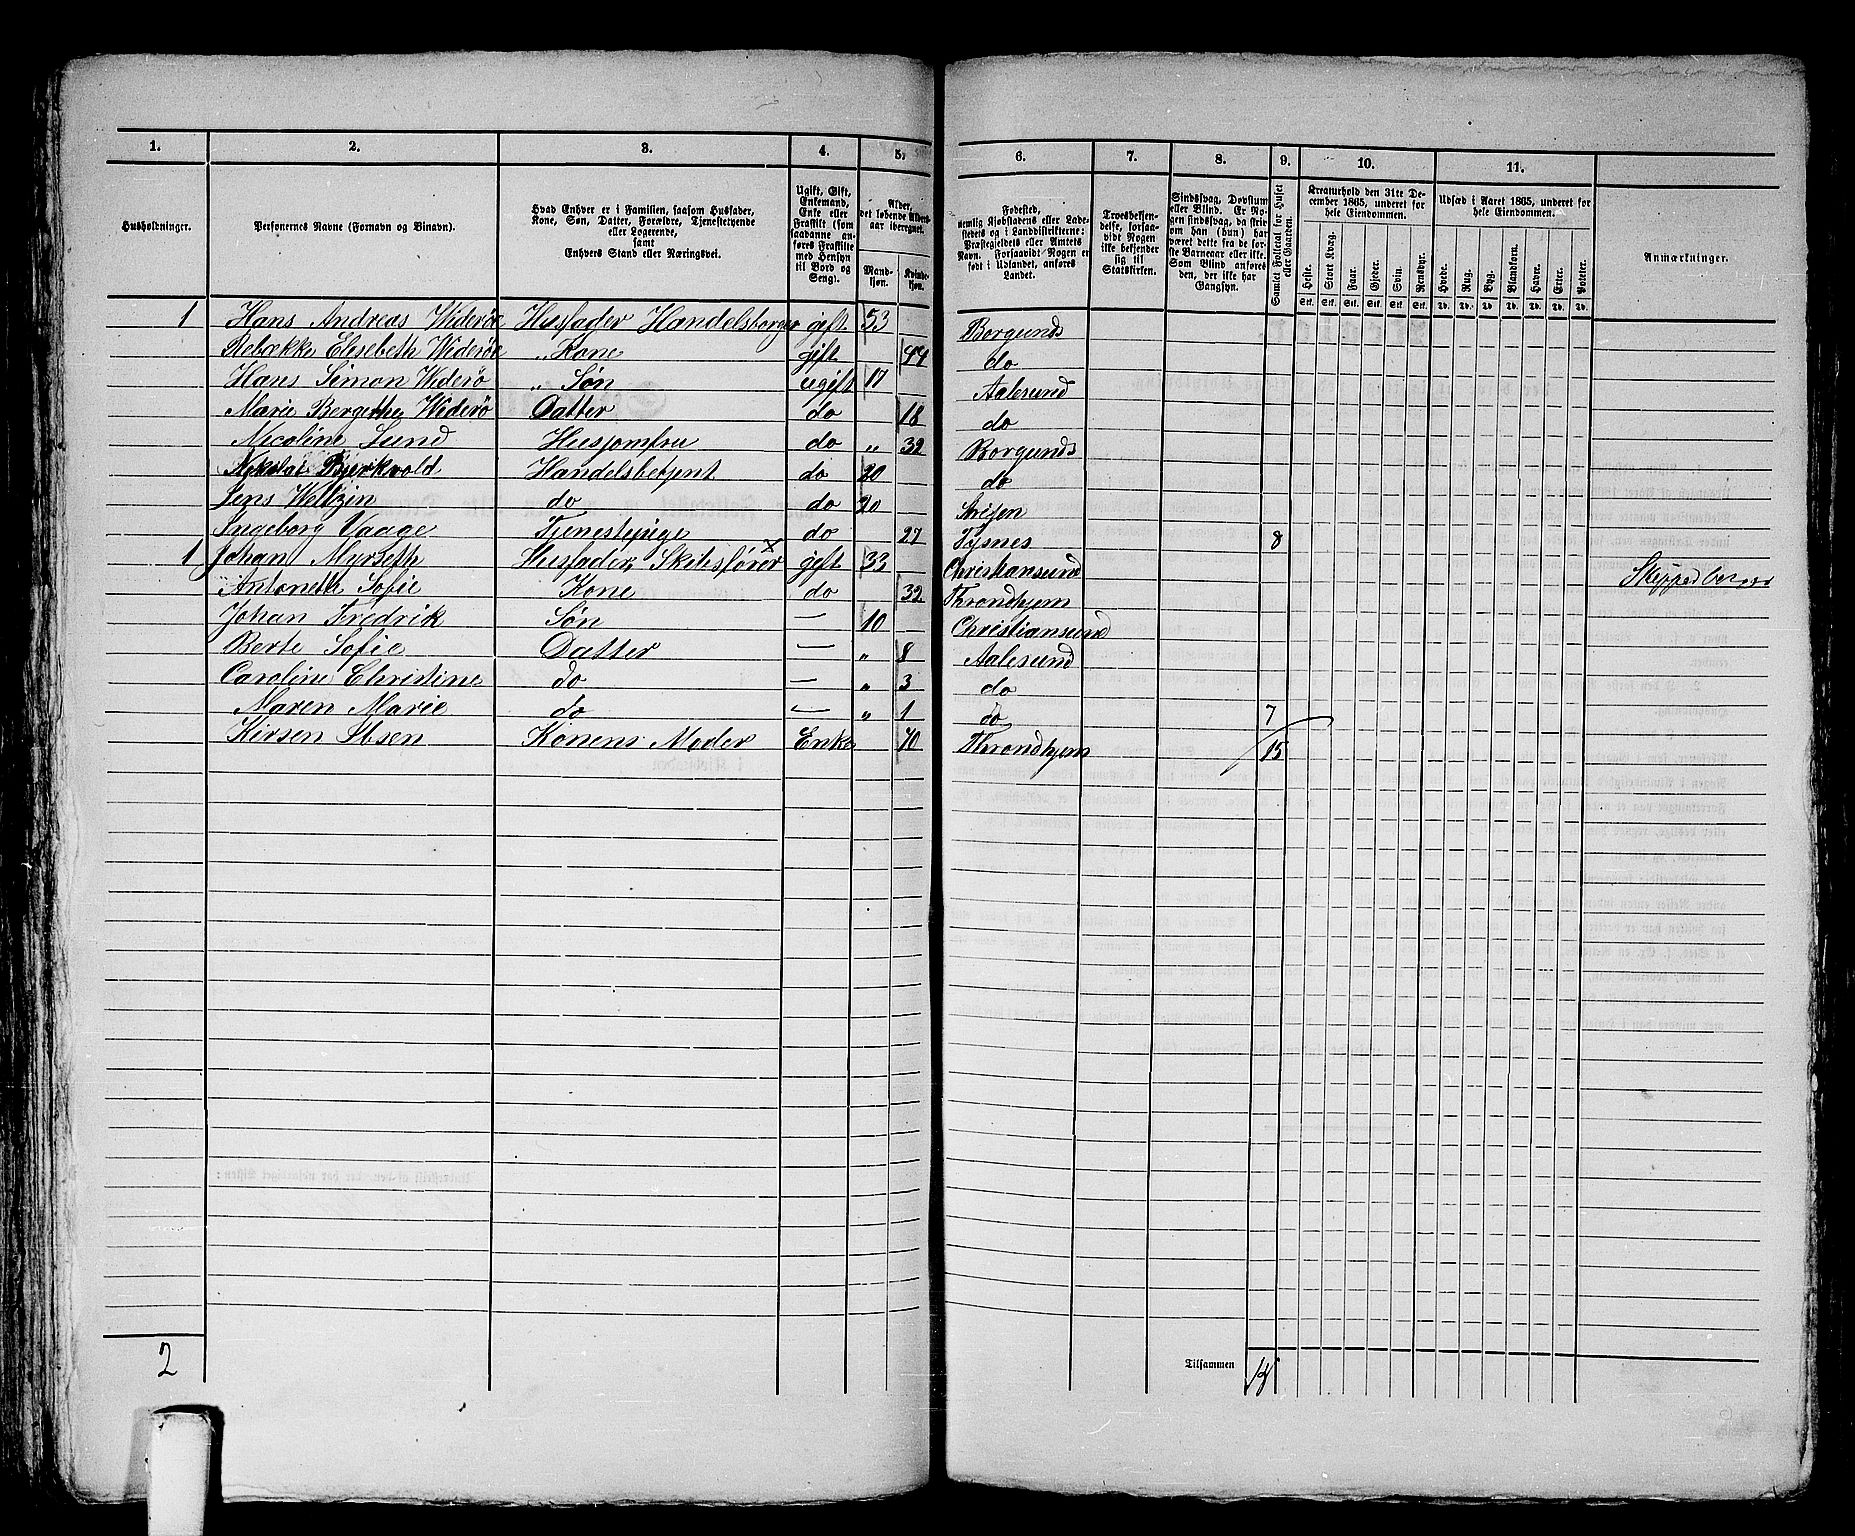 1. 2. 3. 4. 5. 6. 7. 8. 9. 10. 11.
Husholdninger.
Personernes Navne (Fornavn og Binavn).
Hvad Enhver er i Familien, saasom Husfader, Kone, Søn, Datter, Forældre, Tjenestetyende eller Logerende, samt Enhvers Stand eller Næringsvei.
Ugift, Gift, Enkemand, Enke eller Fraskilt (som saadanne anføres Fraskilte med Hensyn til Bord og Seng).
Alder, det løbende Alders-aar iberegnet.
Mand-kjøn. Kvinde-kjøn.
Fødested, nemlig Kjøbstadens eller Ladestedets og i Landdistrikterne: Præstegjeldets eller Amtets Navn. (Forsaavidt Nogen er født i Udlandet, anføres Landet.
Troesbekjendelse, forsaavidt Nogen ikke bekjender sig til Statskirken.
Sindssvag, Døvstum eller Blind. Er Nogen sindssvag, da skrives om han (hun) har været dette fra de første Barneaar eller ikke. Som Blind anføres den, der ikke har Gangsyn.
Samlet Folketal for Huset eller Gaarden.
Kreaturhold den 31te December 1865, underet for hele Eiendommen.
Heste. Stort Kvæg. Faar. Gjeder. Svin. Rensdyr.
Stk. Stk. Stk. Stk. Stk. Stk.
Udsæd i Aaret 1865, underet for hele Eiendommen.
Hvede. Rug. Byg. Blandkorn. Havre. Erter. Poteter.
Td. Td. Td. Td. Td. Td. Td.
Anmærkninger.
1 Hans Andreas Widerøe Husfader Handelsborger gift 53 Borgunds
Rebække Elisebeth Widerøe „ Kone gift 44 do
Hans Simon Widerø „ Søn ugift 17 Aalesund
Marie Bergethe Widerø Datter do 18 do
Nicoline Lund Husjomfru do „ 32 Borgunds
Nikolai Bjerkvold Handelsbetjent do 20 do
Jens Weltzin do do 20
Ingeborg Vaage Tjenestepige do 27 Tysnes 8
1 Johan Myrseth Husfader, Skibsfører gift 33 Christiansund
Antoneth Sofie Kone do 32 Throndhjem
Johan Fredrik Søn — 10 Christiansund
Berte Sofie Datter — „ 8 Aalesund
Caroline Christine do — „ 3 do
Maren Marie do — „ 1 do 7
Kirsen Ibsen Konens Moder Enke 70 Throndhjem 15
2
Tilsammen